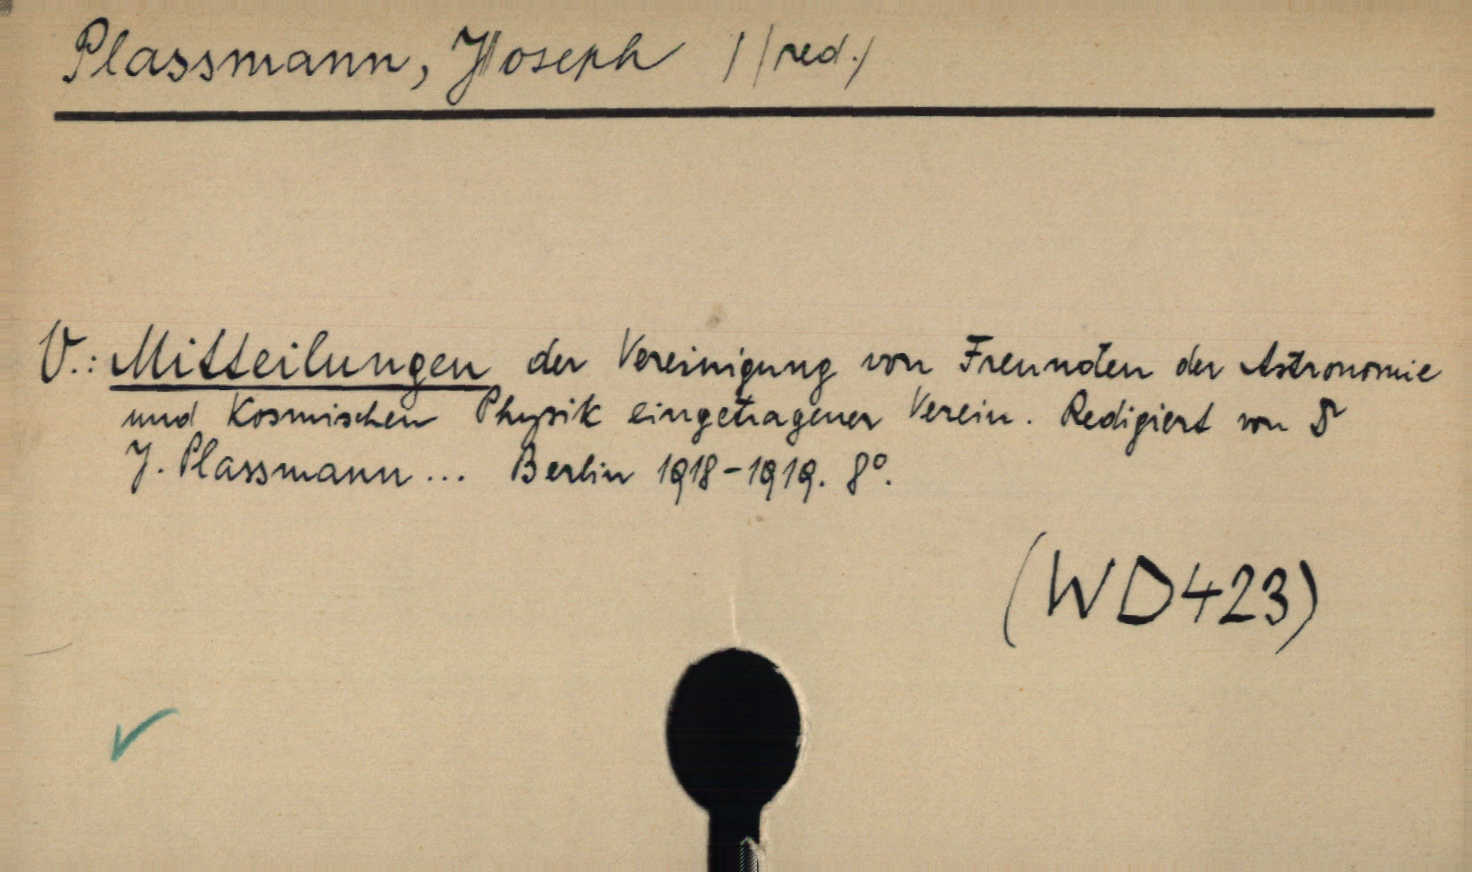 Plassmann, Joseph /(red./
V.: Mitteilungen der Vereinigung von Freunden der Astronomie
und Kosmischen Physik eingetragener Verein. Redigiert von Dr
J. Plassmann... Berlin 1918-1919. 8°.
(WD423)